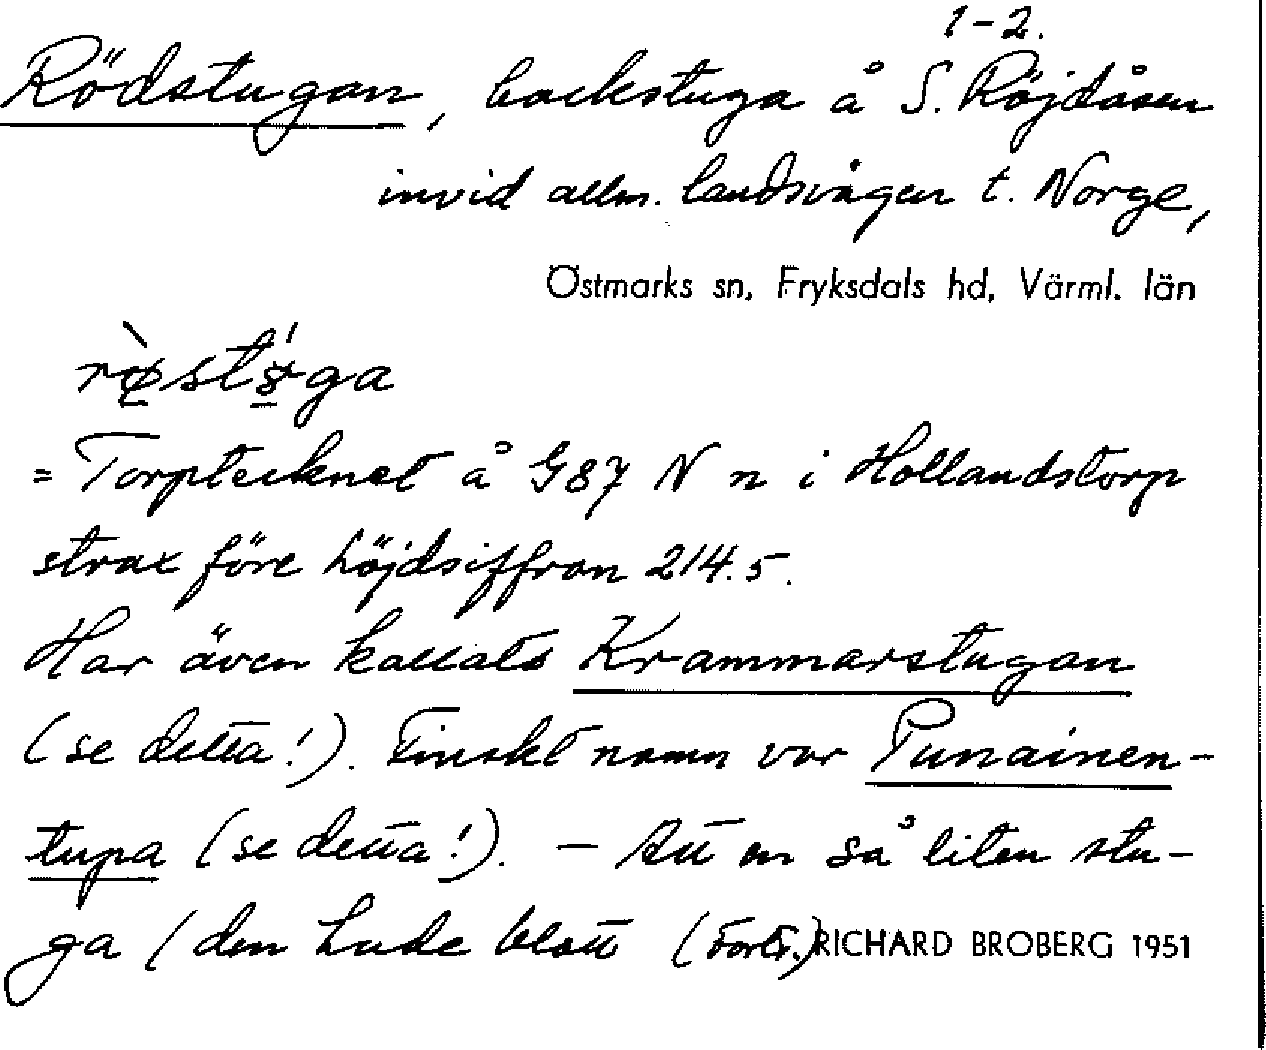 1-2.
Rödstugan, backstuga å S. Röjdåsen
invid allm. landsvägen t. Norge,
Östmarks sn, Fryksdals hd, Värml. län
= Torptecknet å G87 N n i Hollandstorp
strax före höjdsiffran 214.5.
Har även kallats Krammarstugan
(se detta!). Finskt namn var Punainen-
tupa (se detta!). — Att en så liten stu-
ga (den hade blott (Forts.) RICHARD BROBERG 1951